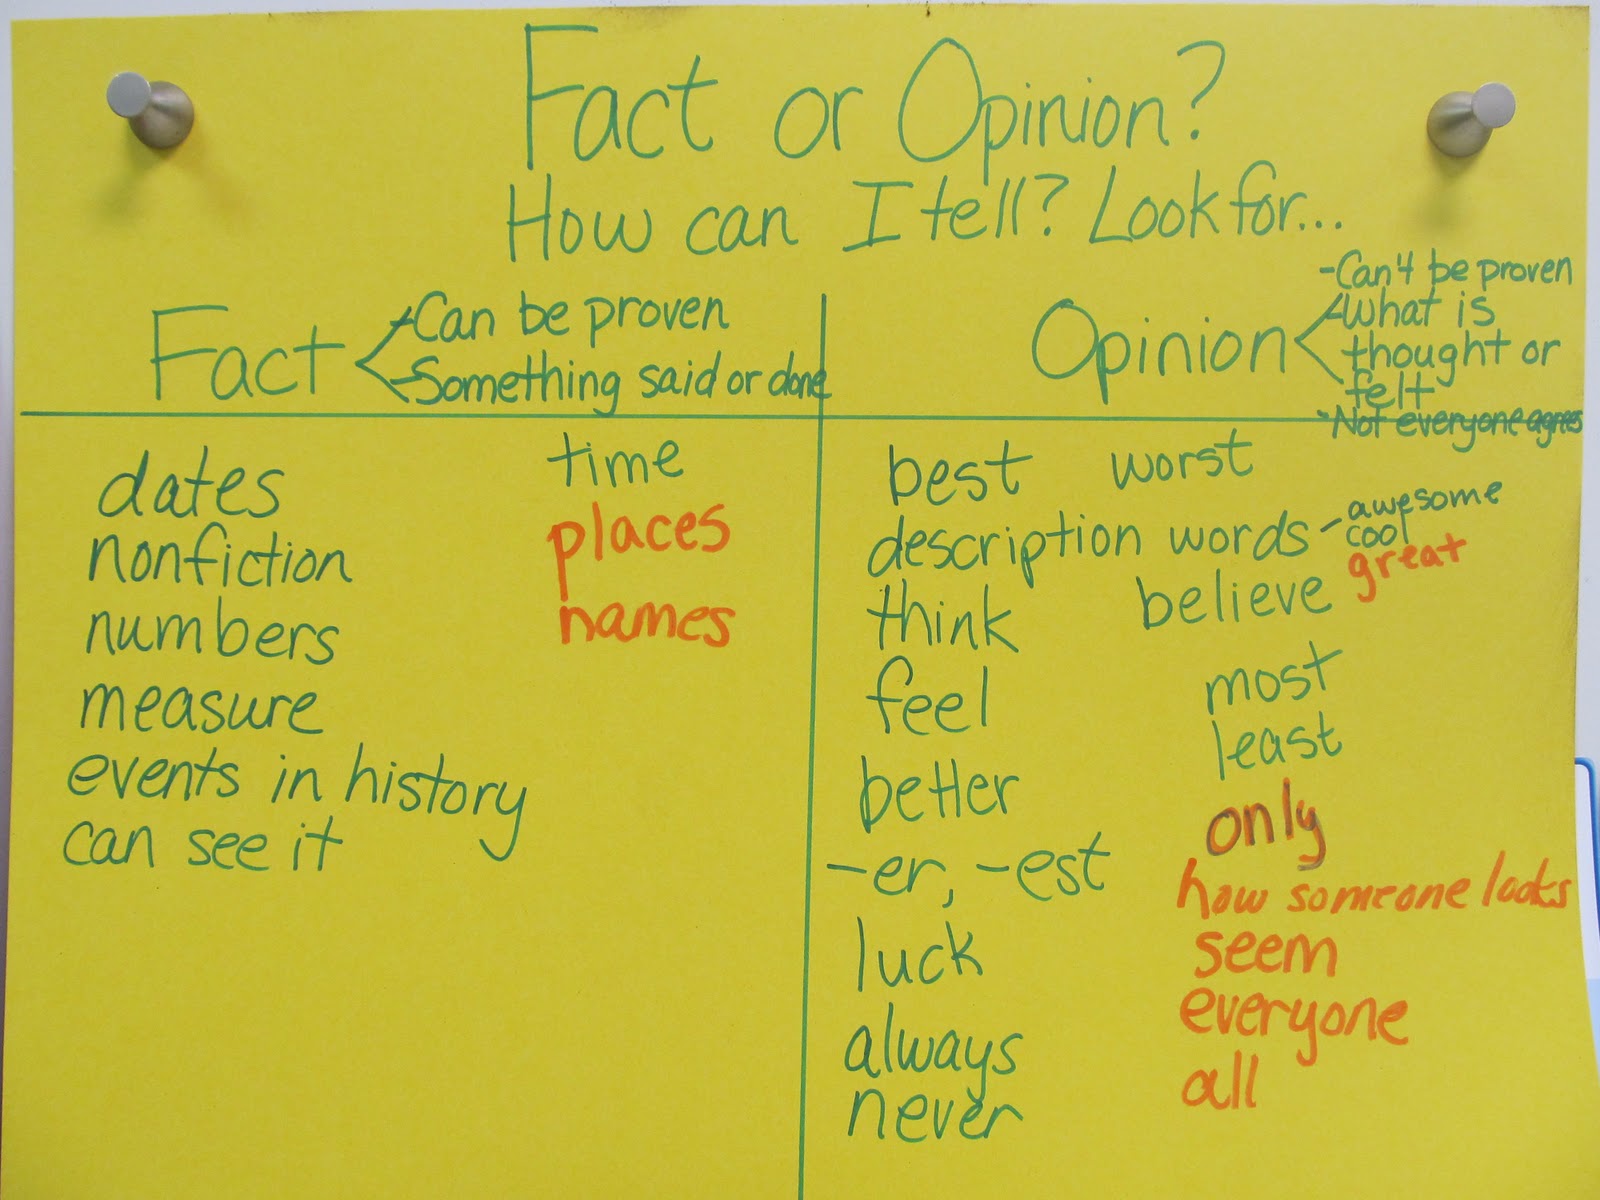 Fact or Opinion?
How can I tell? Look for...
Fact
-Can be proven
-Something said or done
dates
nonfiction
numbers
measure
events in history
can see it
time
places
names
Opinion
-Can't be proven
-What is
thought or
felt
-Not everyone agrees
best worst
description words - awesome
cool
great
think believe
feel
better
-er, -est
luck
always
never
most
least
only
how someone looks
seem
everyone
all